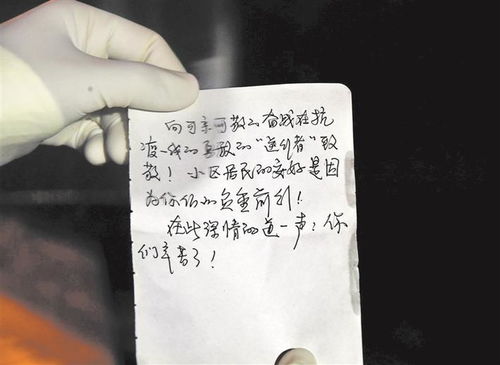 向可亲可敬的奋战在抗
疫一线的勇敢的“逆行者”致
敬！小区居民的安好是因
为你们的负重前行！
在此深情的道一声：你
们辛苦了！